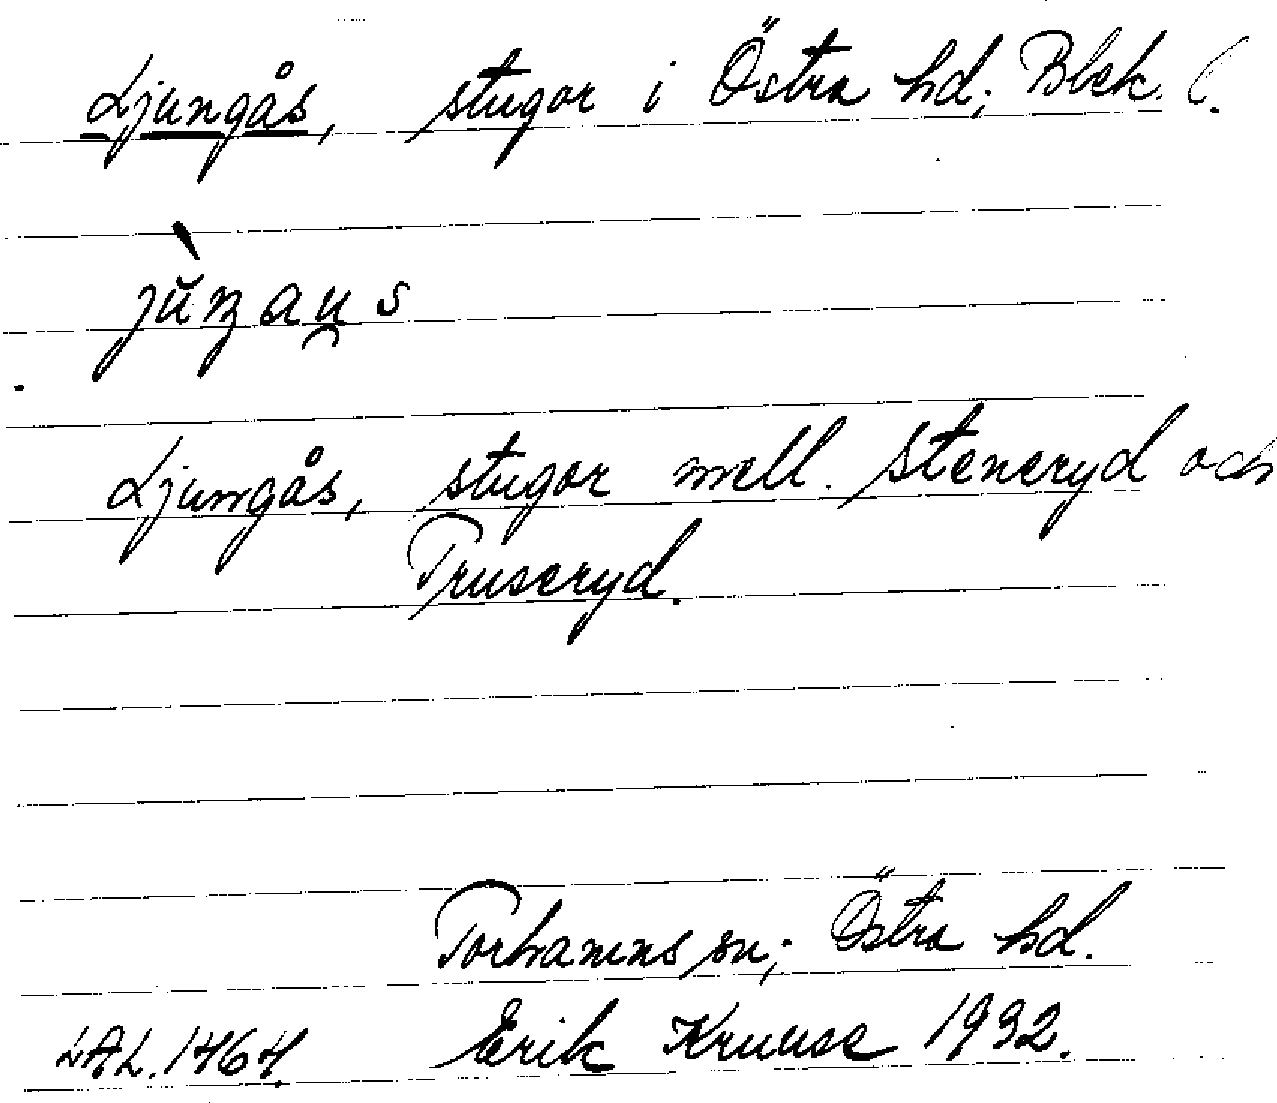 Ljungås, stugor i Östra hd; Blek. l.
jŭŋau̯s
Ljungås, stugor mell. Steneryd och
Truseryd.
Torhamns sn; Östra hd.
LAL. 1464. Erik Kruuse 1932.